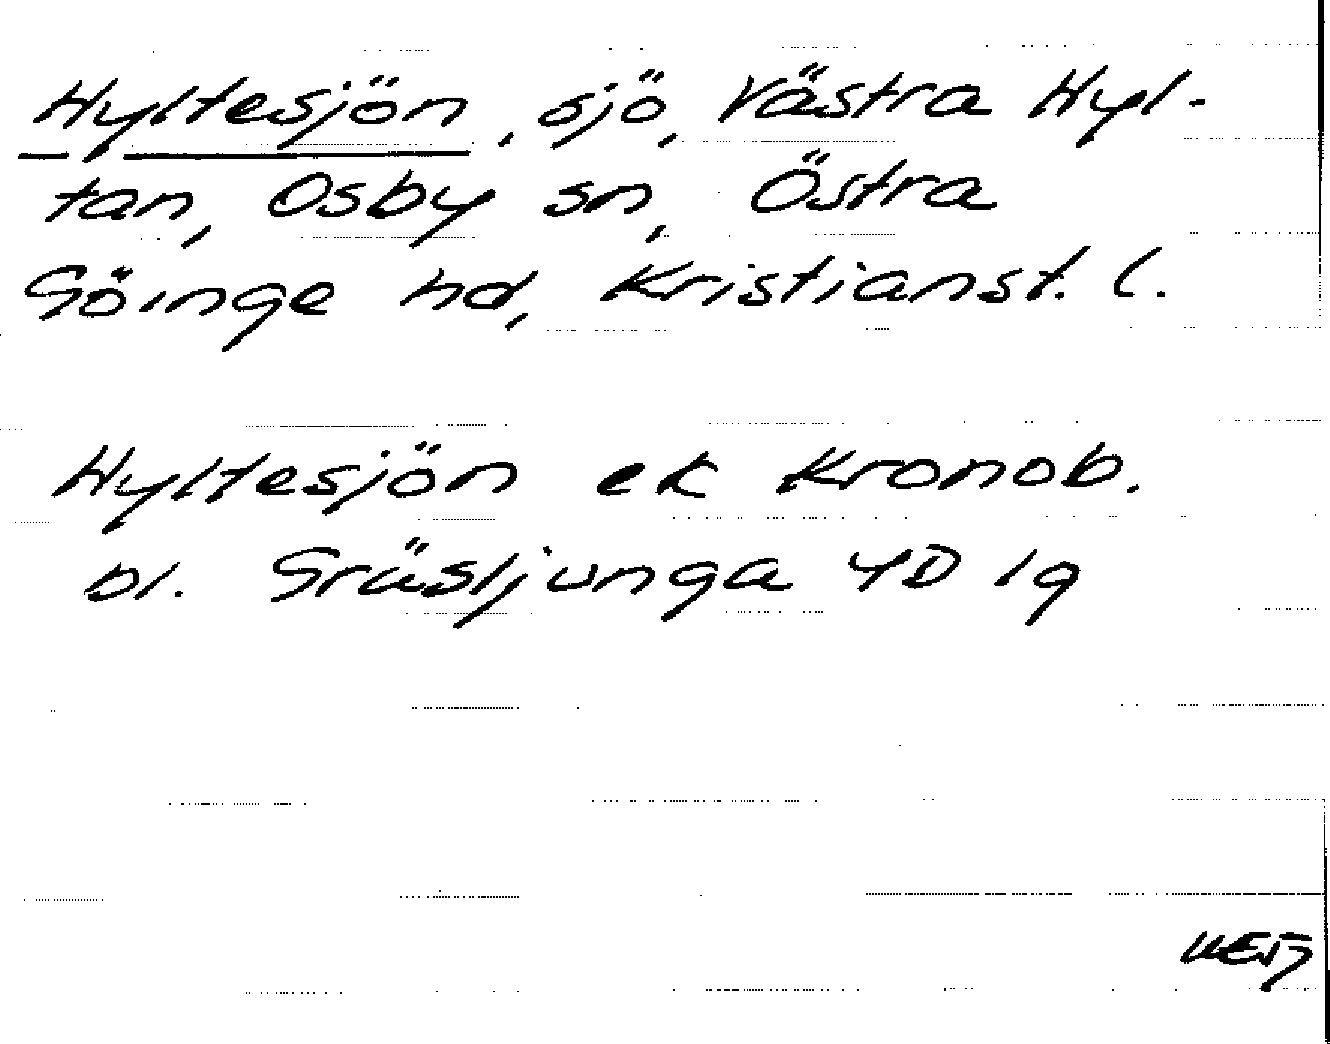 Hyltesjön, sjö, Västra Hyl-
tan, Osby sn, Östra
Göinge hd, Kristianst. l.
Hyltesjön ek Kronob.
bl. Gräsljunga 4D 1g